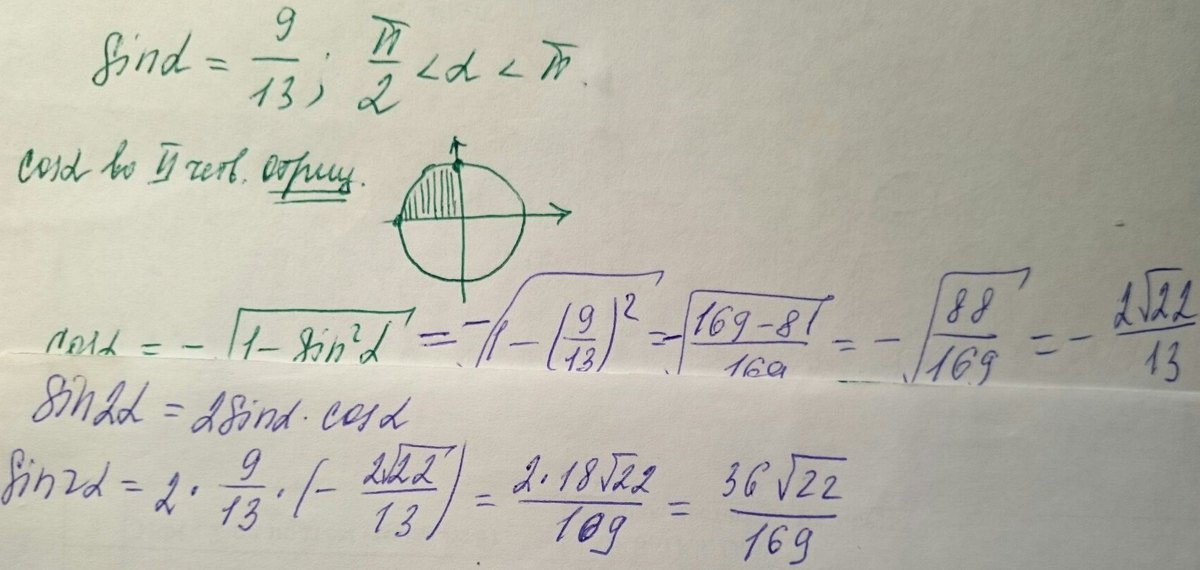 sinα = 9/13; π/2 < α < π.
cosα во II четв. отриц.
cosα = -√(1 - sin²α) = -√(1 - (9/13)²) = -√((169 - 81)/169) = -√(88/169) = - 2√22/13
sin2α = 2sinα · cosα
sin2α = 2 · 9/13 · (- 2√22/13) = 2·18√22/169 = 36√22/169